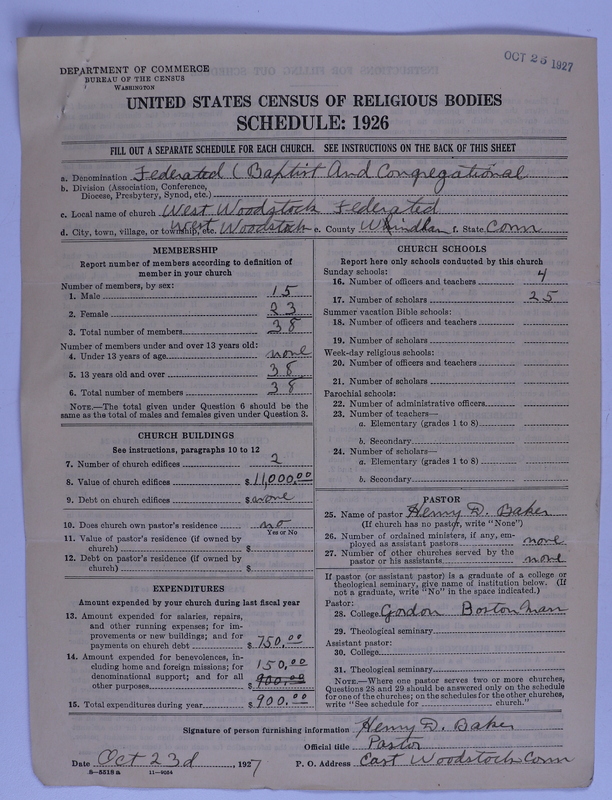 OCT 25 1927
DEPARTMENT OF COMMERCE
BUREAU OF THE CENSUS
WASHINGTON
UNITED STATES CENSUS OF RELIGIOUS BODIES
SCHEDULE: 1926
FILL OUT A SEPARATE SCHEDULE FOR EACH CHURCH. SEE INSTRUCTIONS ON THE BACK OF THIS SHEET
a. Denomination Federated (Baptist And Congregational
b. Division (Association, Conference,
Diocese, Presbytery, Synod, etc.)
c. Local name of church West Woodstock Federated
d. City, town, village, or township, etc. West Woodstock e. County Windham f. State Conn
MEMBERSHIP
Report number of members according to definition of
member in your church
Number of members, by sex:
1. Male 15
2. Female 23
3. Total number of members 38
Number of members under and over 13 years old:
4. Under 13 years of age none
5. 13 years old and over 38
6. Total number of members 38
NOTE.—The total given under Question 6 should be the
same as the total of males and females given under Question 3.
CHURCH BUILDINGS
See instructions, paragraphs 10 to 12
7. Number of church edifices 2
8. Value of church edifices $11,000.00
9. Debt on church edifices $none
10. Does church own pastor's residence no
Yes or No
11. Value of pastor's residence (if owned by
church) $
12. Debt on pastor's residence (if owned by
church) $
EXPENDITURES
Amount expended by your church during last fiscal year
13. Amount expended for salaries, repairs,
and other running expenses; for im-
provements or new buildings; and for
payments on church debt $750.00
14. Amount expended for benevolences, in-
cluding home and foreign missions; for
denominational support; and for all
other purposes 150.00
$900.00
15. Total expenditures during year $900.00
CHURCH SCHOOLS
Report here only schools conducted by this church
Sunday schools:
16. Number of officers and teachers 4
17. Number of scholars 25
Summer vacation Bible schools:
18. Number of officers and teachers
19. Number of scholars
Week-day religious schools:
20. Number of officers and teachers
21. Number of scholars
Parochial schools:
22. Number of administrative officers
23. Number of teachers—
a. Elementary (grades 1 to 8)
b. Secondary
24. Number of scholars—
a. Elementary (grades 1 to 8)
b. Secondary
PASTOR
25. Name of pastor Henry D. Baker
(If church has no pastor, write "None")
26. Number of ordained ministers, if any, em-
ployed as assistant pastors none
27. Number of other churches served by the
pastor or his assistants none
If pastor (or assistant pastor) is a graduate of a college or
theological seminary, give name of institution below. (If
not a graduate, write "No" in the space indicated.)
Pastor:
28. College Gordon Boston Mass
29. Theological seminary
Assistant pastor:
30. College
31. Theological seminary
NOTE.—Where one pastor serves two or more churches,
Questions 28 and 29 should be answered only on the schedule
for one of the churches; on the schedules for the other churches,
write "See schedule for church."
Signature of person furnishing information Henry D. Baker
Official title Pastor
Date Oct 23d, 1927 P. O. Address East Woodstock Conn
8—5518a 11—9054